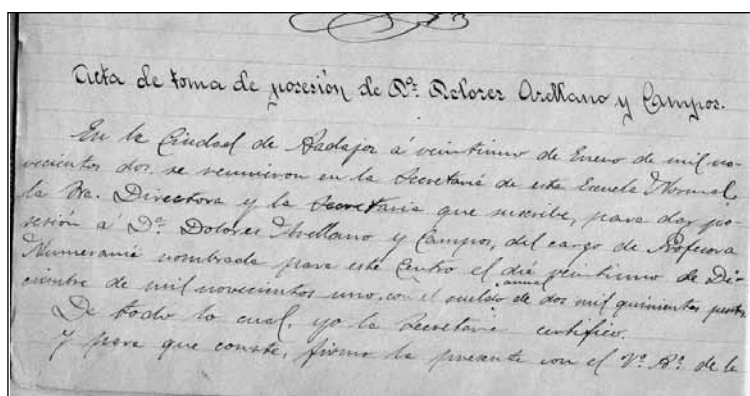 Acta de toma de posesión de Dª. Dolores Arellano y Campos.
En la Ciudad de Badajoz á veintiuno de Enero de mil no-
vecientos dos, se reunieron en la Secretaría de esta Escuela Normal,
la Sra. Directora y la Secretaria que suscribe, para dar po-
sesión á Dª. Dolores Arellano y Campos, del cargo de Profesora
Numeraria nombrada para este Centro el día veintiuno de Di-
ciembre de mil novecientos uno, con el sueldo anual de dos mil quinientas pesetas.
De todo lo cual, yo la Secretaria certifico.
Y para que conste, firmo la presente con el Vº. Bº. de la